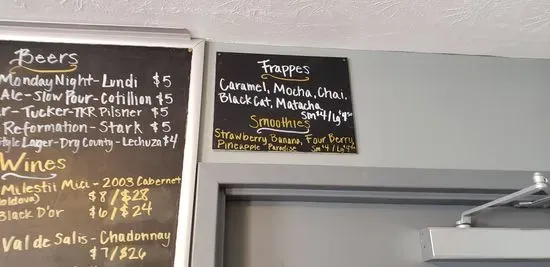 Beers
Monday Night - Lundi $5
Ale - Slow Pour - Cotillion $5
r - Tucker - TKR Pilsner $5
Reformation - Stark $5
style Lager - Dry County - Lechuza $4
Wines
Milestii Mici - 2003 Cabernet
oldova) $8/$28
Black D'or $6/$24
Val de Salis - Chadonnay
$7/$26
Frappes
Caramel, Mocha, Chai,
Black Cat, Matacha
Sm $4/Lg
Smoothies
Strawberry Banana, Four Berry
Pineapple Paradise Sm $4/Lg